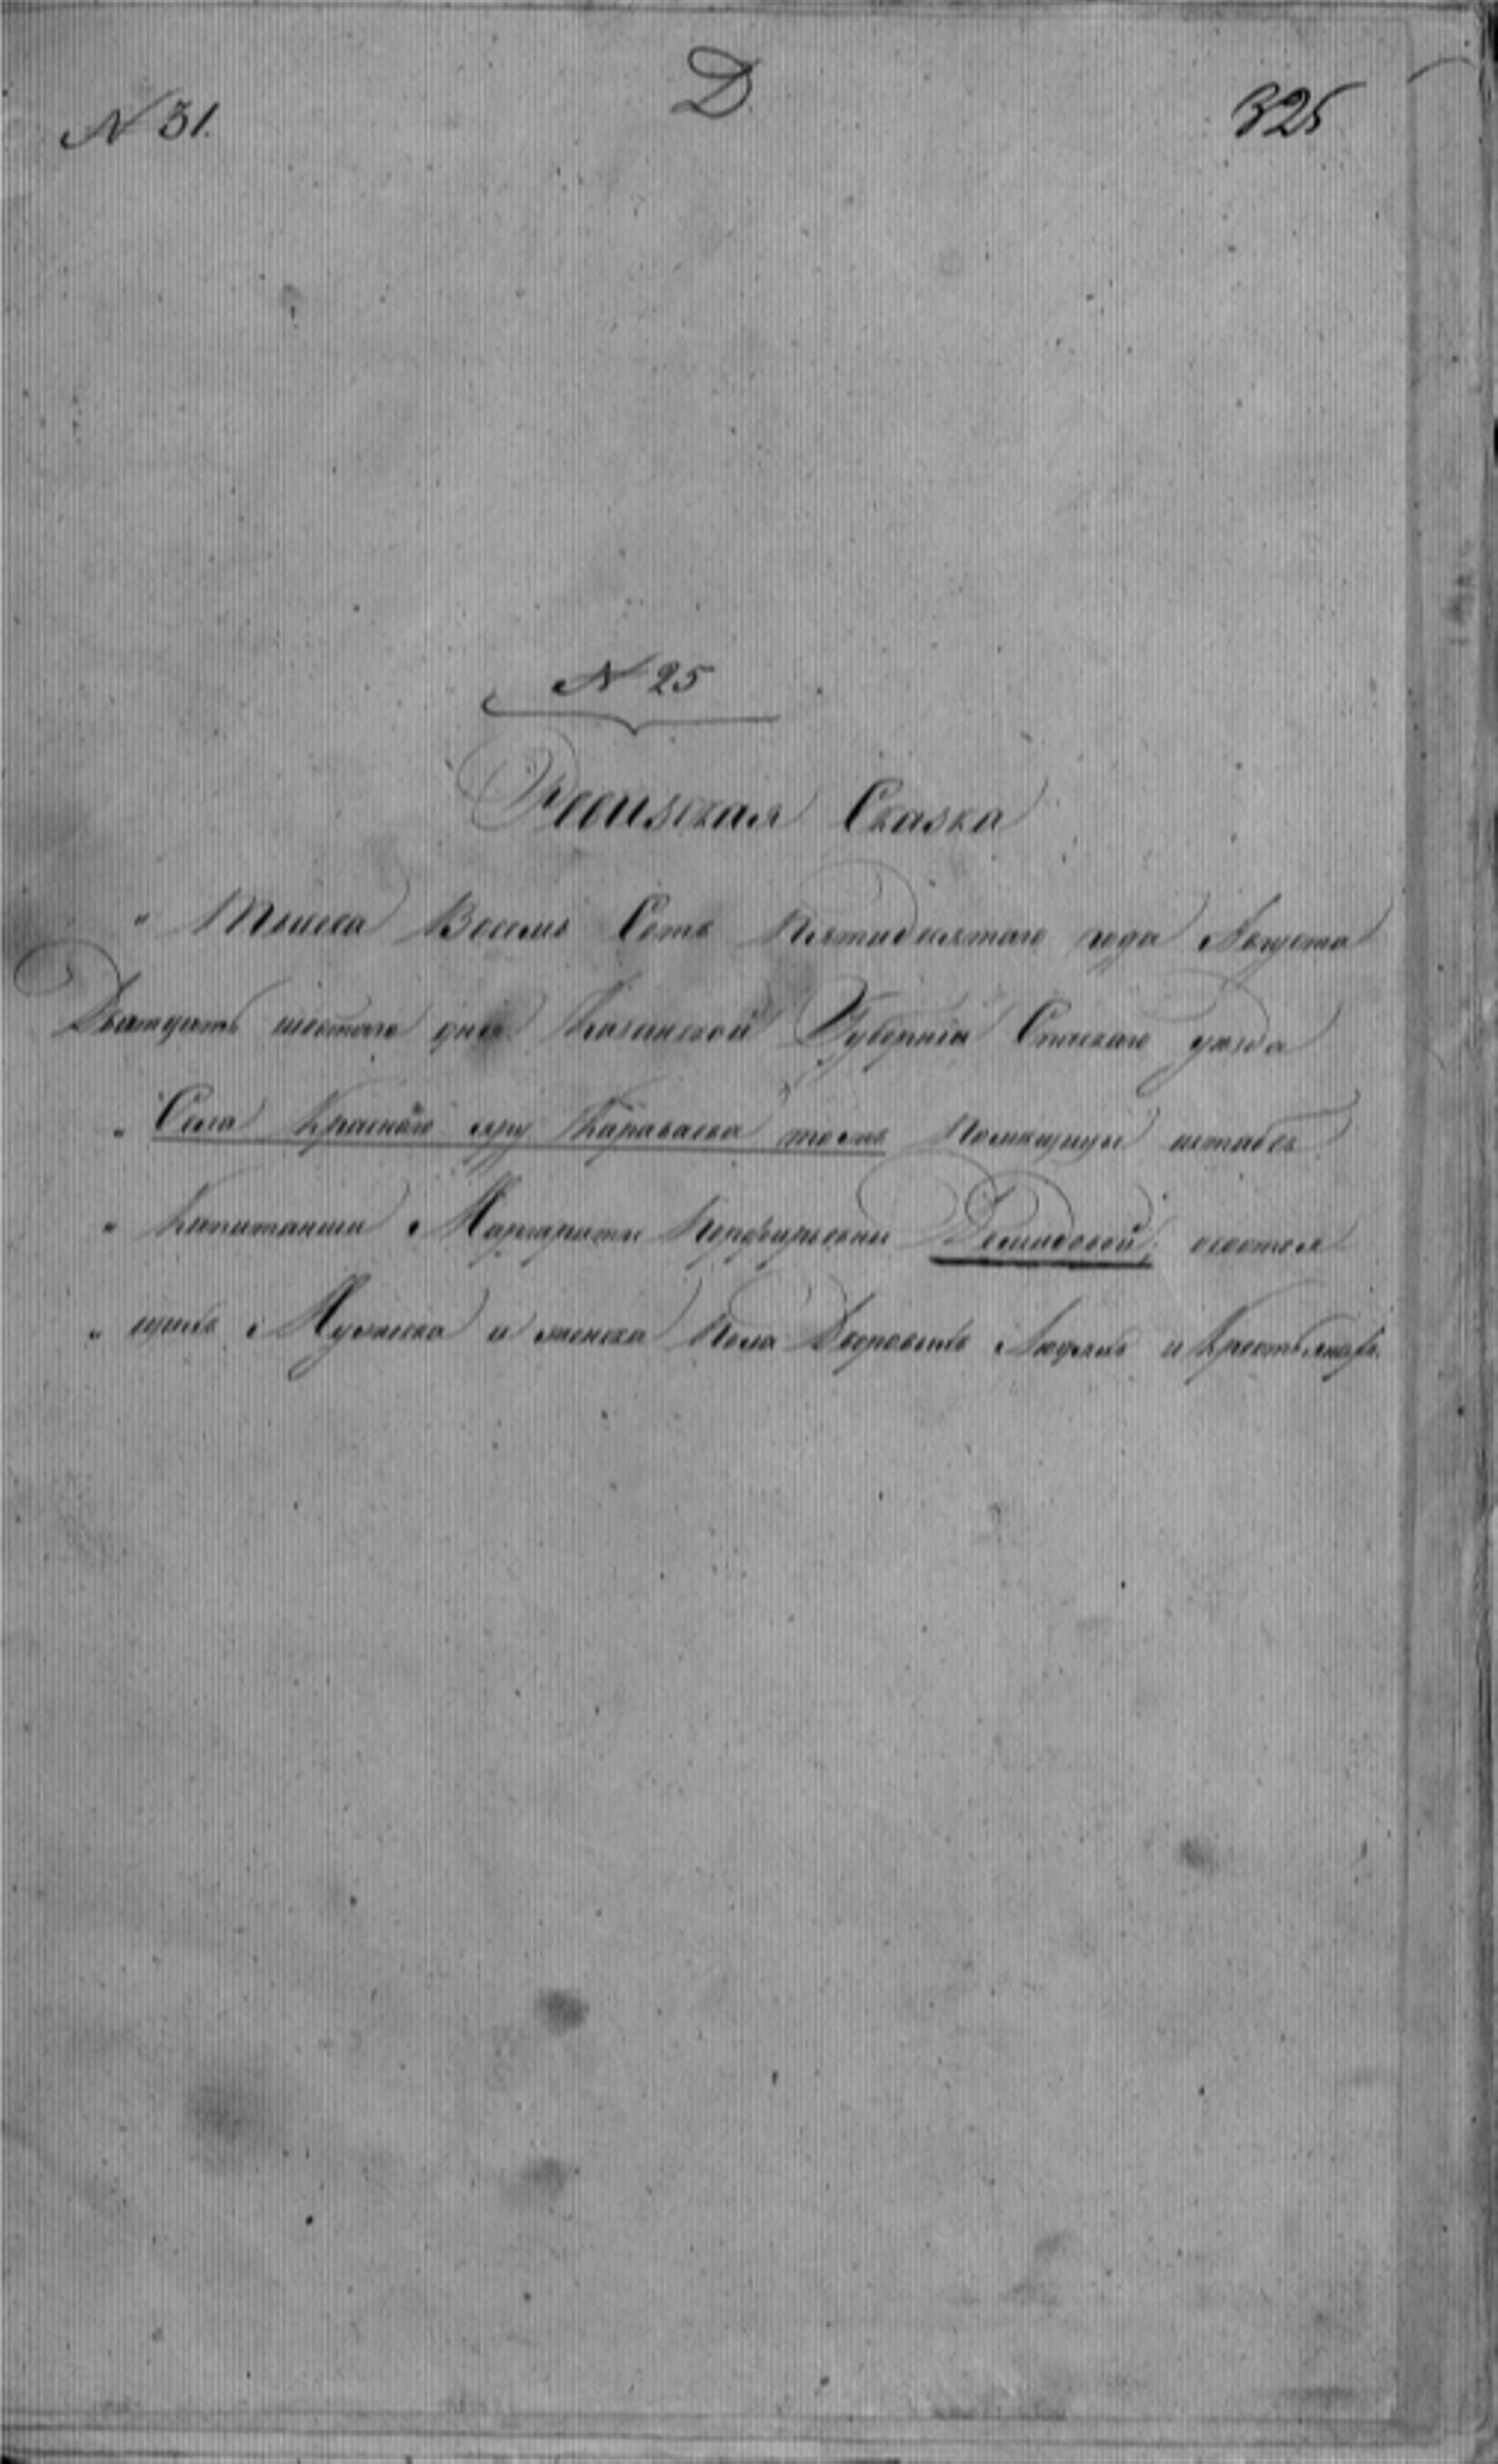 N 31.
D
325
N 25
Ревизская Сказка
Тысеча Восемь Сотъ Пятидесятаго года Августа
Дватцать шестаго дня Казанской Губерніи Спаскаго уезда
Села Краснаго яру Караваева тожъ Помещицы штабсъ
Капитанши Маргариты Перфирьевны Демидовой, состоя
щихъ Мужеска и женска Пола Дворовыхъ Людяхъ и Крестьянахъ.